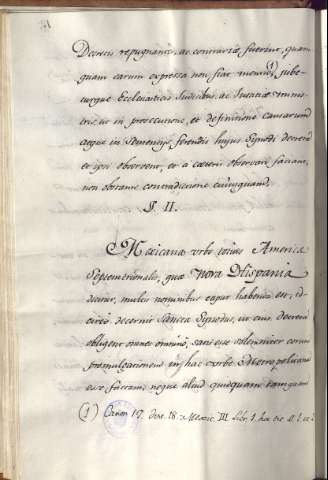 Decretis repugnantes, ac contrariæ fuerint, quam
quam earum expressa non fiat mentio(1), jube
turque Ecclesiasticis Judicibus, ac Justitiæ minis
tris, ut in prosecutione, et definitione causarum
atque in sententijs ferendis hujus Synodi decreta
et ipsi observent, et a cæteris observari faciant,
non obstante contradictione cujusquam.
§. II.
Mexicana urbs totius America
Septemtrionalis, quæ Nova Hispania
dicitur, multis nominibus caput habenda est, id
circo decernit Sancta Synodus, ut ejus decreta
obligent omnes omnino, satis esse solemniter eorum
promulgationem in hac urbe Metropolitana
esse factam, neque aliud quicquam tamquam
(1) Canon 17. dist. 18. Mexic. III Lib. 1. hoc tit.